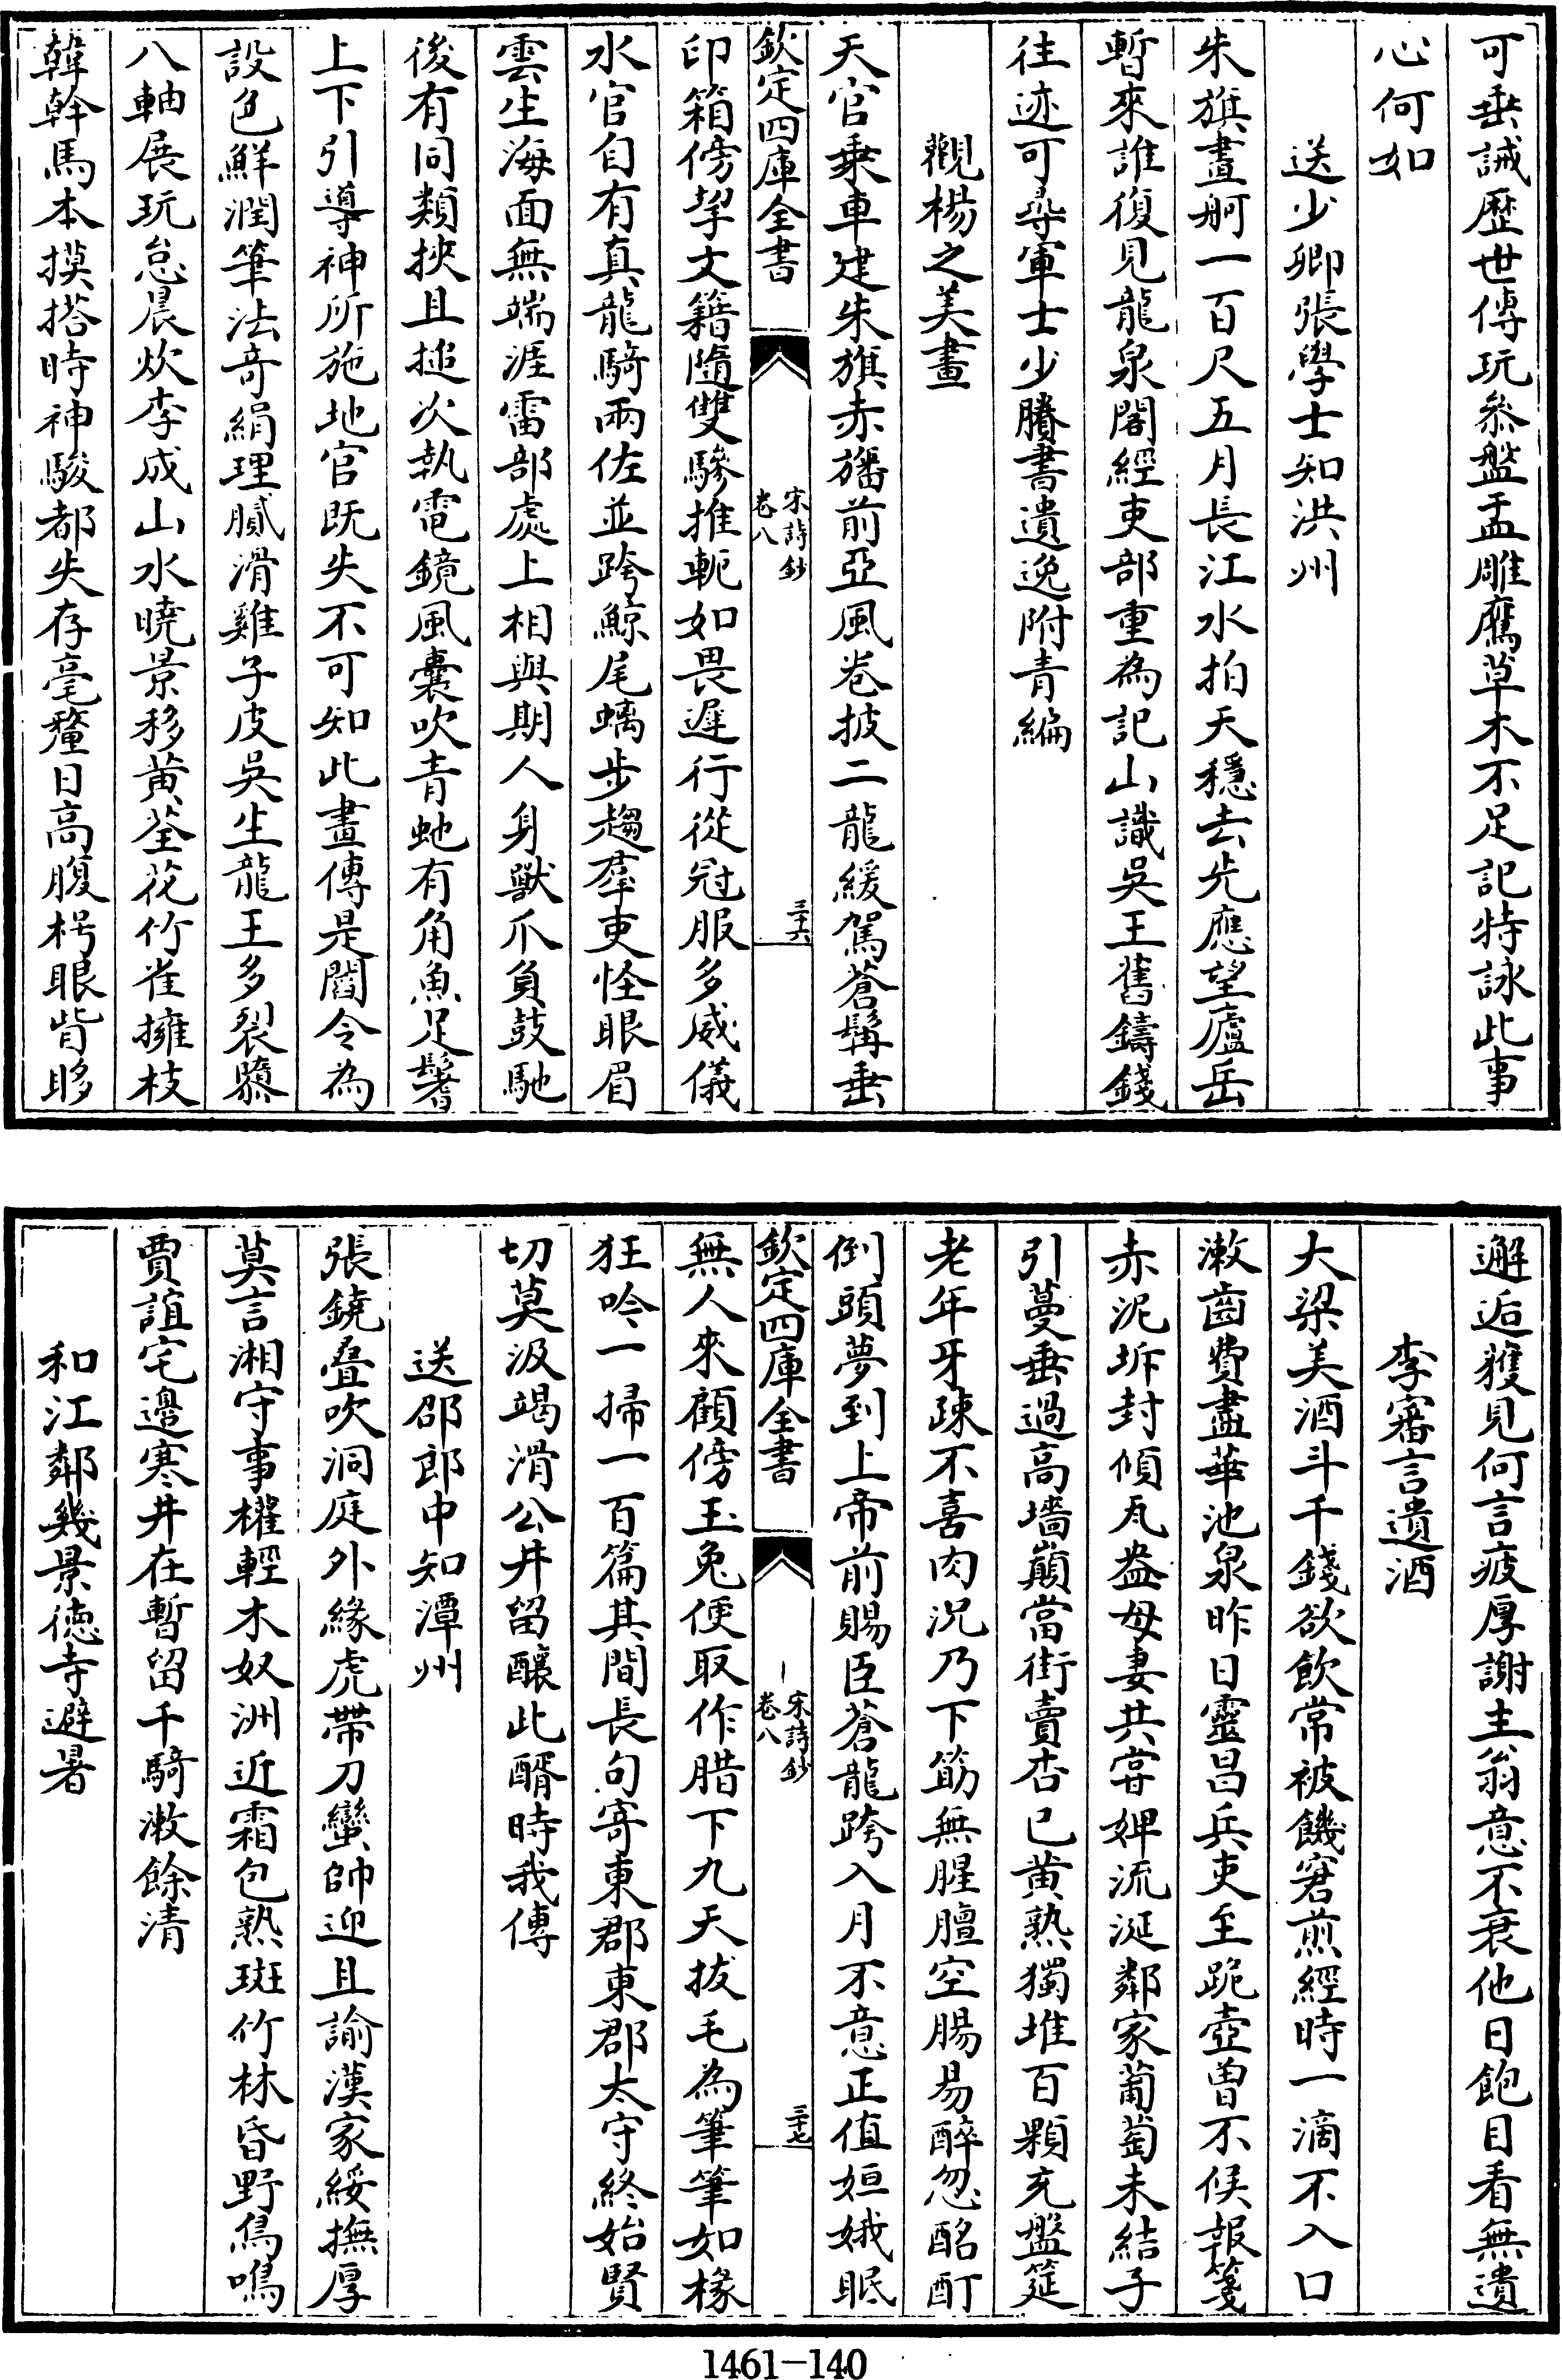 可垂誡歴世傳玩參盤盂雕鷹草木不足記特詠此事
心何如
送少卿張學士知洪州
朱旗畫舸一百尺五月長江水拍天穩去先應望廬岳
暫來誰復見龍泉閣經吏部重為記山識吳王舊鑄錢
往迹可尋軍士少賸書遺逸附青編
觀楊之美畫
天官乗車建朱旗赤旛前亞風卷披二龍緩駕蒼髯垂
欽定四庫全書
宋詩鈔
卷八
三十六
印箱傍挈文籍隨雙驂推軛如畏遲行從冠服多威儀
水官自有真龍騎兩佐並跨鯨尾螭步趨羣吏怪眼眉
雲生海面無端涯雷部處上相與期人身獸爪負鼓馳
後有同類挾且搥次執電鏡風囊吹青虵有角魚足鬐
上下引導神所施地官既失不可知此畫傳是閻令為
設色鮮潤筆法奇絹理膩滑雞子皮吳生龍王多裂隳
八軸展玩怠晨炊李成山水曉景移黄荃花竹雀擁枝
韓幹馬本摸搭時神駿都失存毫釐日高腹枵眼眥眵
邂逅獲見何言疲厚謝主翁意不衰他日飽目看無遺
李審言遺酒
大梁美酒斗千錢欲飲常被饑窘煎經時一滴不入口
漱齒費盡華池泉昨日靈昌兵吏至跪壺曽不候報箋
赤泥坼封傾瓦盎母妻共甞婢流涎鄰家葡萄未結子
引蔓垂過高墻巔當街賣杏已黄熟獨堆百顆充盤筵
老年牙疎不喜肉況乃下筯無腥膻空腸易醉忽酩酊
倒頭夢到上帝前賜臣蒼龍跨入月不意正值姮娥眠
欽定四庫全書
宋詩鈔
卷八
三十七
無人來顧傍玉兔便取作腊下九天拔毛為筆筆如椽
狂吟一掃一百篇其間長句寄東郡東郡太守終始賢
切莫汲竭滑公井留釀此醑時我傳
送邵郎中知潭州
張鐃疊吹洞庭外緣虎帶刀蠻帥迎且諭漢家綏撫厚
莫言湘守事權輕木奴洲近霜包熟斑竹林昏野鳥鳴
賈誼宅邊寒井在暫留千騎漱餘清
和江鄰幾景德寺避暑
1461-140